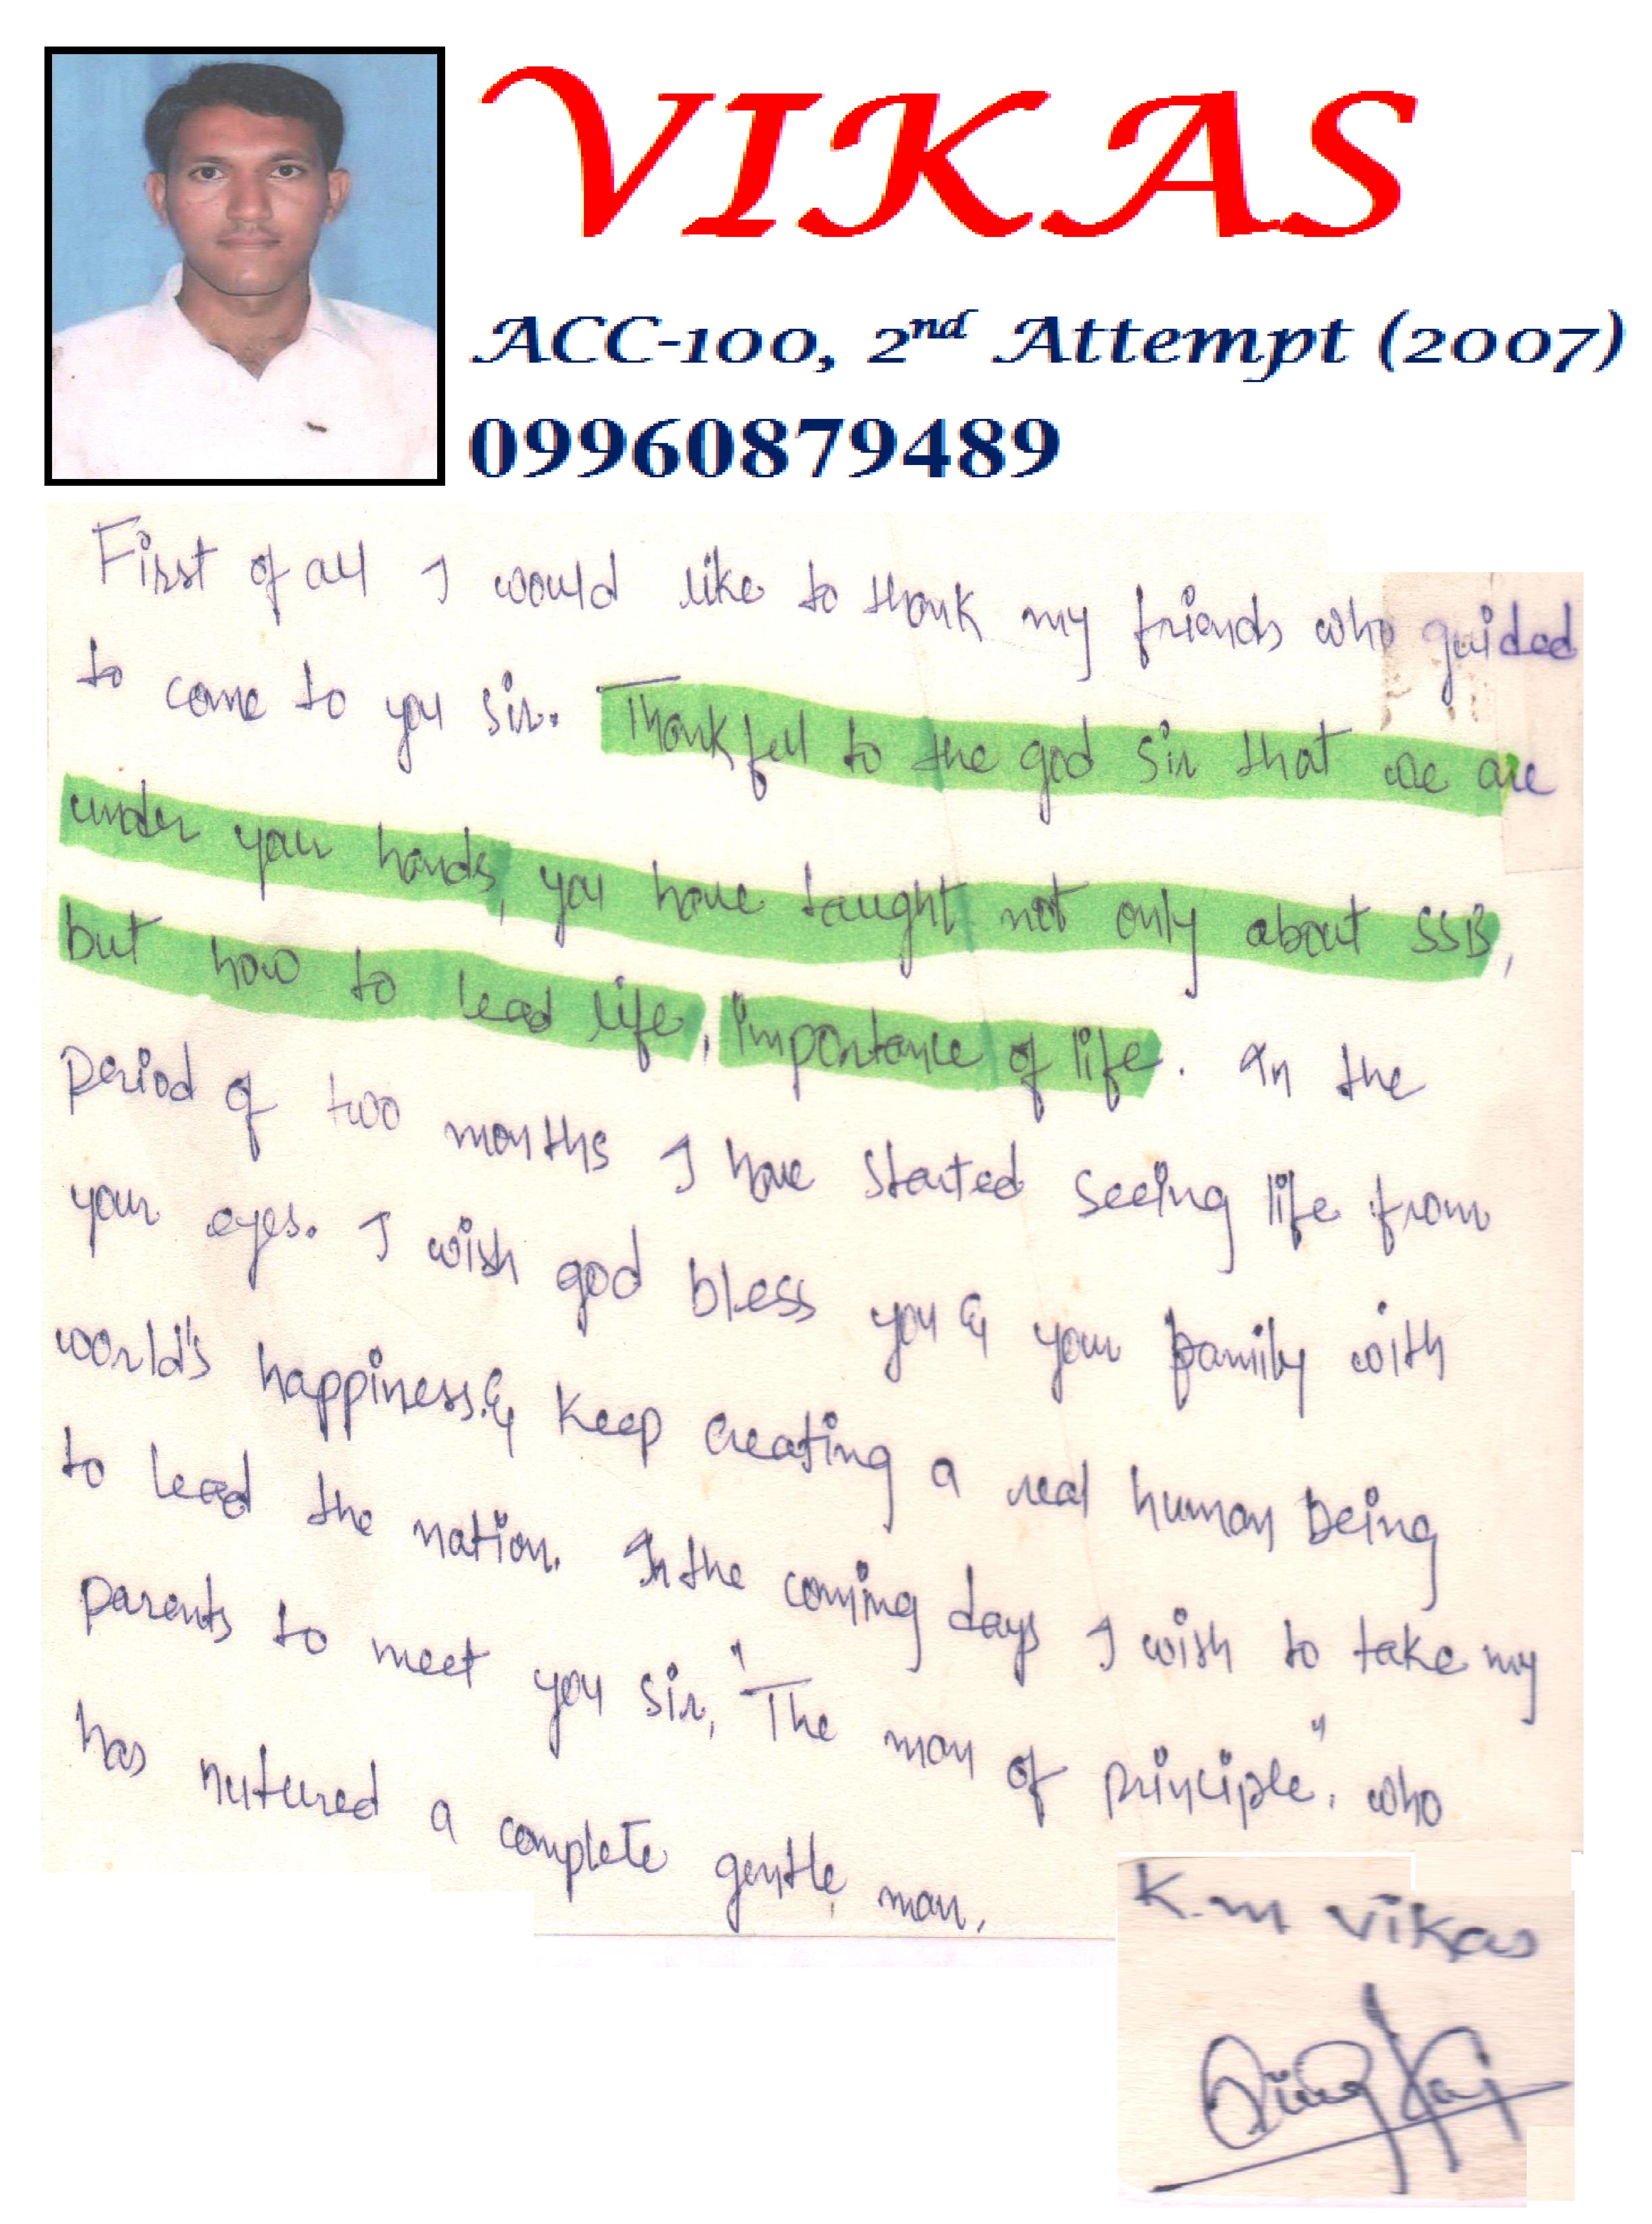 VIKAS
ACC-100, 2nd Attempt (2007)
09960879489
First of all I would like to thank my friends who guided
to come to you sir. Thankfull to the god sir that we are
under your hands, you have taught not only about SSB,
but how to lead life, importance of life. In the
period of two months I have started seeing life from
your eyes. I wish god bless you & your family with
world's happiness.& keep creating a real human being
to lead the nation. In the coming days I wish to take my
parents to meet you sir, "The man of principle", who
has nutured a complete gentle man.
K.M Vikas